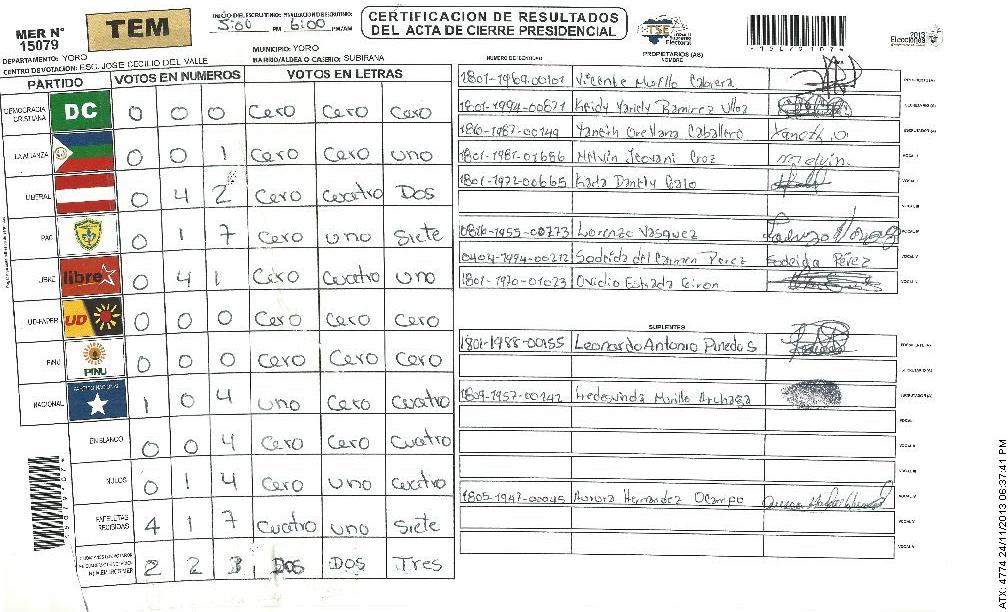 MER Nº 15079
TEM
INICIO DEL ESCRUTINIO: 5:00 PM
FINALIZACION ESCRUTINIO: 6:00 PM/AM
CERTIFICACION DE RESULTADOS
DEL ACTA DE CIERRE PRESIDENCIAL
TSE
2013
Elecciones
DEPARTAMENTO: YORO
MUNICIPIO: YORO
CENTRO DE VOTACION: ESC. JOSE CECILIO DEL VALLE
BARRIO/ALDEA O CASERIO: SUBIRANA
PARTIDO VOTOS EN NUMEROS VOTOS EN LETRAS
DEMOCRACIA CRISTIANA DC 0 0 0 Cero Cero Cero
LA ALIANZA 0 0 1 Cero Cero uno
LIBERAL 0 4 2 Cero Cuatro Dos
PAC 0 1 7 Cero uno Siete
LIBRE libre 0 4 1 Cero Cuatro uno
UD-FAPER UD 0 0 0 Cero Cero Cero
PINU PINU 0 0 0 Cero Cero Cero
NACIONAL 1 0 4 uno Cero Cuatro
EN BLANCO 0 0 4 Cero Cero Cuatro
NULOS 0 1 4 Cero uno Cuatro
PAPELETAS RECIBIDAS 4 1 7 Cuatro uno Siete
2 2 3 Dos Dos Tres
NUMERO DE IDENTIDAD
PROPIETARIOS (AS)
NOMBRE
Vicente Murillo Cabrera
1801-1994-00871 Keidy Yariely Ramirez Ulloa
Yaneth Orellana Caballero Yaneth.o
1801-1981-01656 Melvin Jeovani Cruz melvin.
1801-1972-00665
Lorenzo Vasquez
0404-1994-00212 Sodeida del Carmen Perez Sodeida Pérez
1801-1970-01023 Ovidio Estrada Giron
SUPLENTES
1801-1988-00155 Leonardo Antonio Pinedo S
1809-1957-00142 Fredesvinda Murillo Archaga
1805-1947-00045 Aurora Hernandez Ocampo
ATX: 4774 24/11/2013 06:37:41 PM